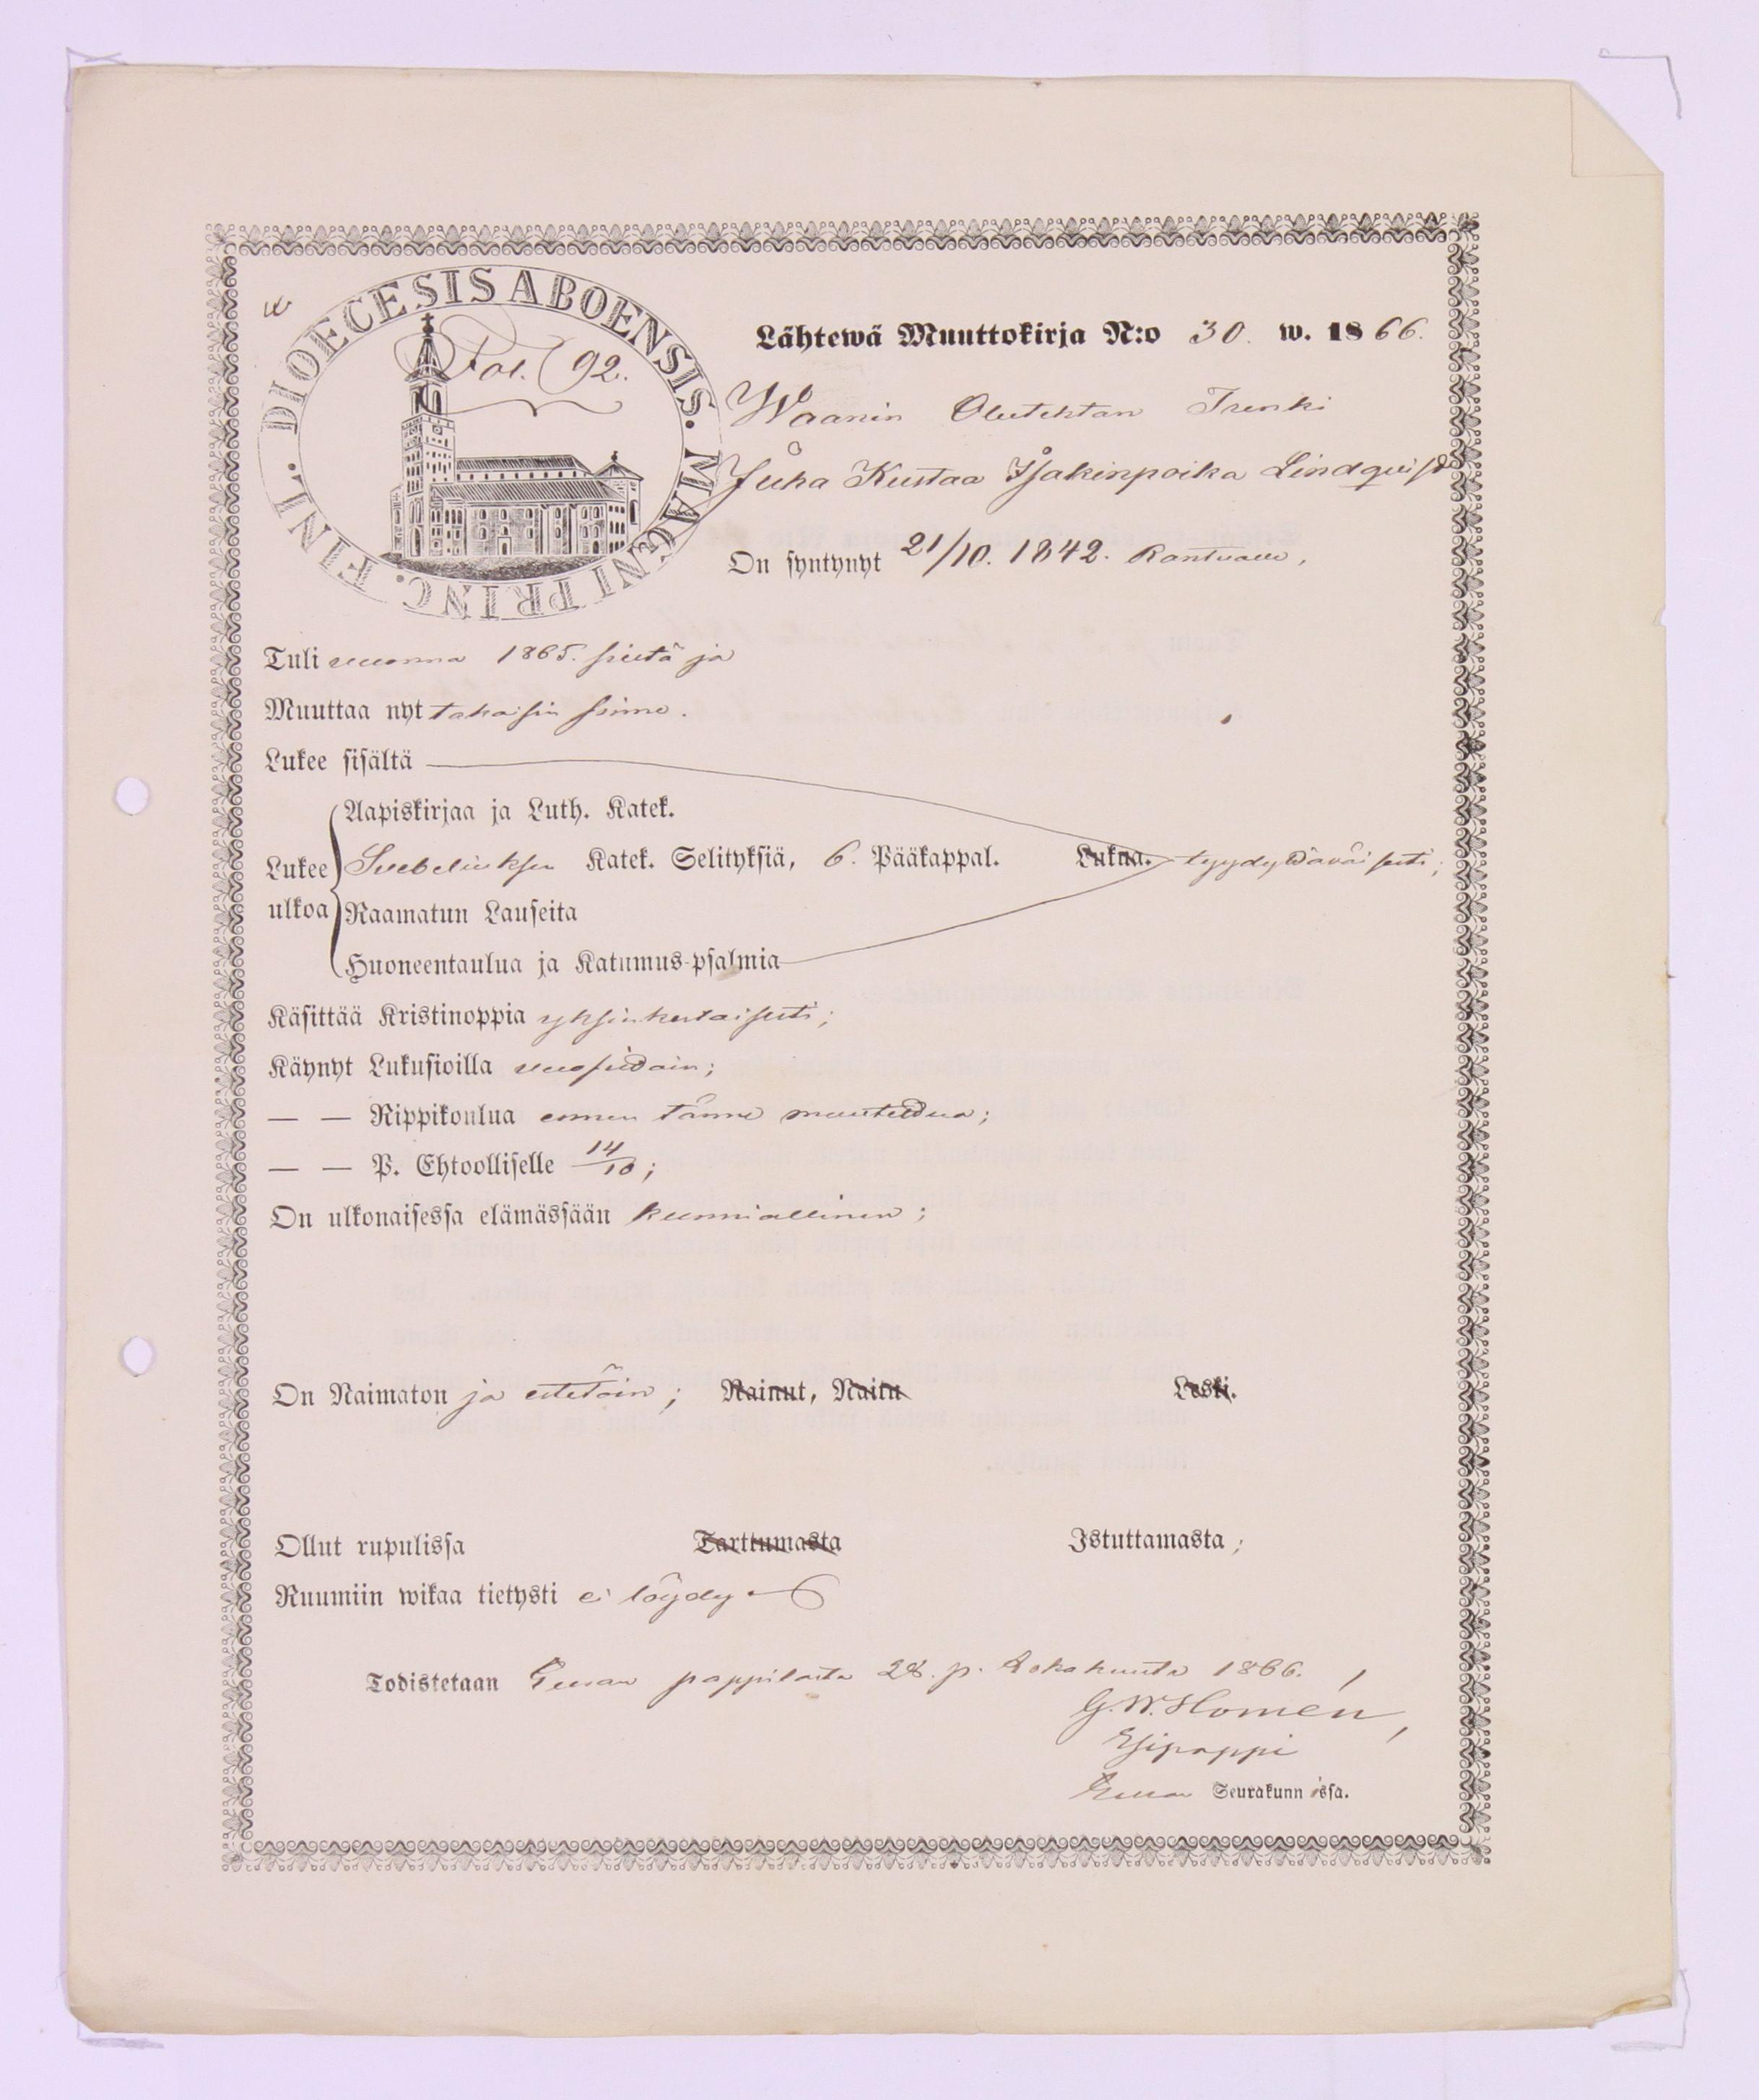 DIOECESIS ABOENSIS. MAGNI PRINC. FINL.
Fol. 92.
Lähtewä Muuttokirja N:o 30. w. 1866.
Waanin Olutehtan Trenki
Juha Kustaa Isakinpoika Lindqvist
On syntynyt 21/10. 1842. Kantvalla,
Tuli vuonna 1865. sieltä ja
Muuttaa nyt takaisin sinne.
Lukee sisältä
Aapiskirjaa ja Luth. Katek.
Lukee ulkoa Svebeliuksen Katek. Selityksiä, 6. Pääkappal. Lukua. tyydyttäväisesti;
Raamatun Lauseita
Huoneentaulua ja Katumus-psalmia
Käsittää Kristinoppia yksinkertaisesti;
Käynyt Lukusioilla vuosittain;
— — Rippikoulua ennen tänne muuttettua;
— — P. Ehtoolliselle 14/10;
On ulkonaisessa elämässään kunniallinen;
On Naimaton ja estetöin; Nainut, Naitu Leski.
Ollut rupulissa Tarttumasta Istuttamasta;
Ruumiin wikaa tietysti ei löydy
Todistetaan Euran pappilasta 28. p. Lokakuuta 1866.
G. W. Homén,
Esipappi
Euran Seurakunnissa.